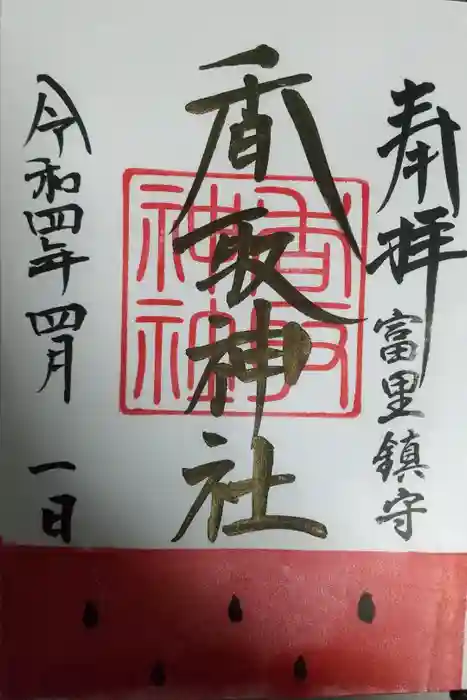 奉拝
富里鎮守
香取神社
香取
神社
令和四年四月一日